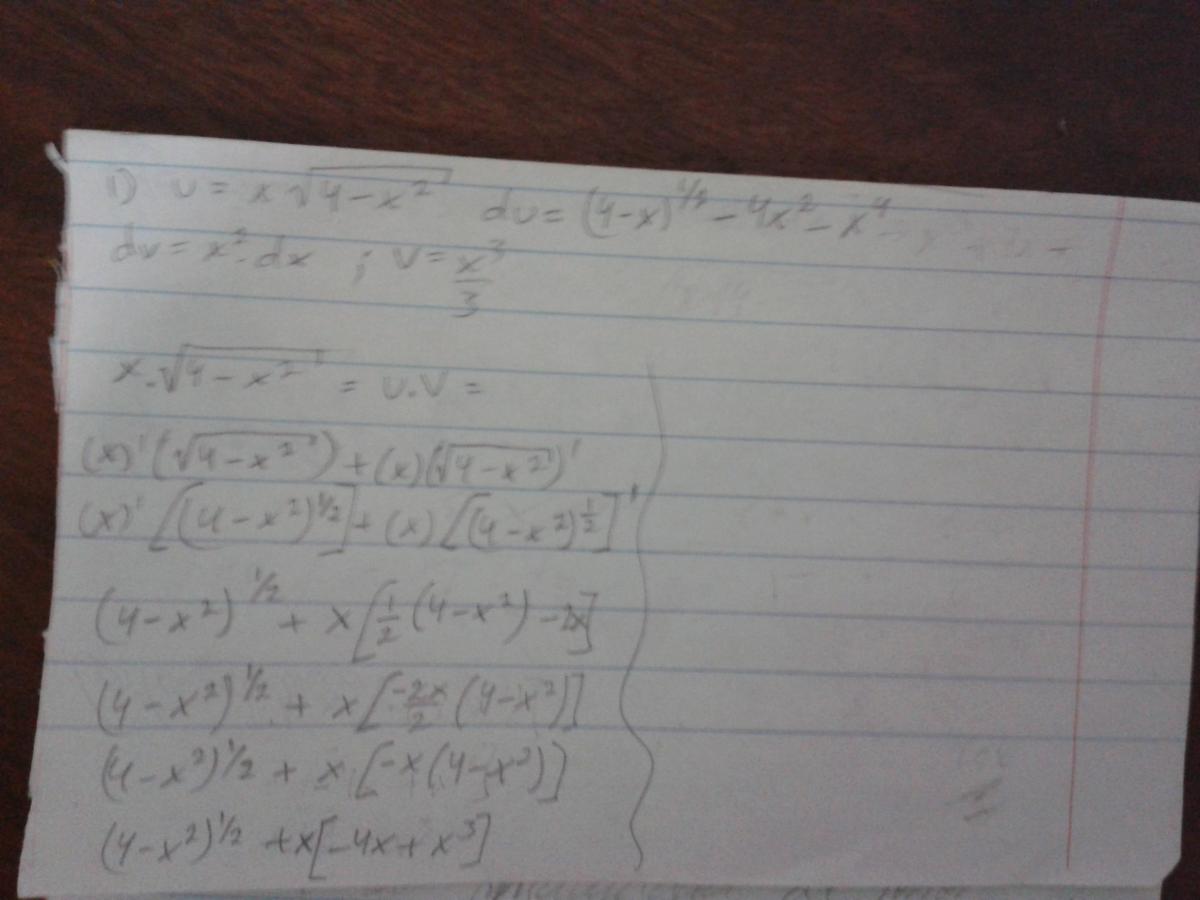 1) u = x √(4-x²) du = (4-x)^1/2 - 4x² - x⁴
dv = x²·dx ; v = x³/3
x·√(4-x²) = u.v =
(x)' (√(4-x²)) + (x)(√(4-x²))'
(x)' [(4-x²)^1/2] + (x) [(4-x²)^1/2]'
(4-x²)^1/2 + x[1/2 (4-x²) - 2x]
(4-x²)^1/2 + x[-2x/2 (4-x²)]
(4-x²)^1/2 + x[-x(4-x²)]
(4-x²)^1/2 + x[-4x + x³]